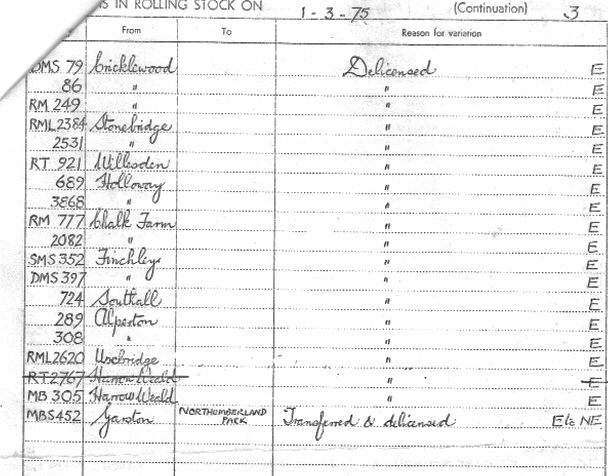 IS IN ROLLING STOCK ON 1-3-75 (Continuation) 3
From To Reason for variation
DMS 79 Cricklewood Delicensed E
86 " " E
RM 249 " " E
RML2384 Stonebridge " E
2531 " " E
RT 921 Willesden " E
689 Holloway " E
3868 " " E
RM 777 Chalk Farm " E
2082 " " E
SMS 352 Finchley " E
DMS 397 " " E
724 Southall " E
289 Alperton " E
308 " " E
RML2620 Uxbridge " E
RT2767 Harrow Weald " E
MB 305 Harrow Weald " E
MBS452 Garston NORTHUMBERLAND PARK Transferred & delicensed E to NE